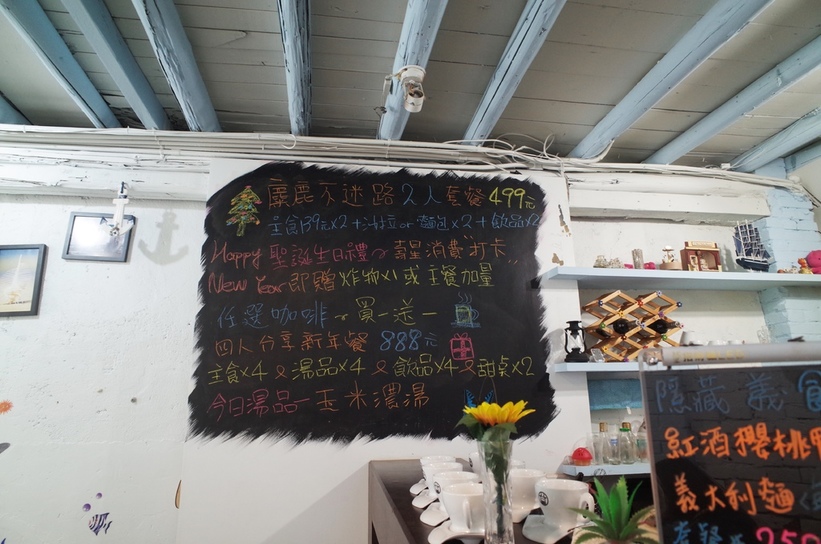 麋鹿不迷路 2人套餐 499元
主食139元x2+沙拉 or 麵包x2+飲品x2
Happy 聖誕生日禮~壽星消費打卡...
New Year 即贈 炸物x1 或 主餐加量
任選咖啡~買一送一
四人分享新年餐 888元
主食x4 & 湯品x4 & 飲品x4 & 甜桌x2
今日湯品-玉米濃湯
隱藏義
紅酒櫻桃鴨
義大利麵
套餐
250